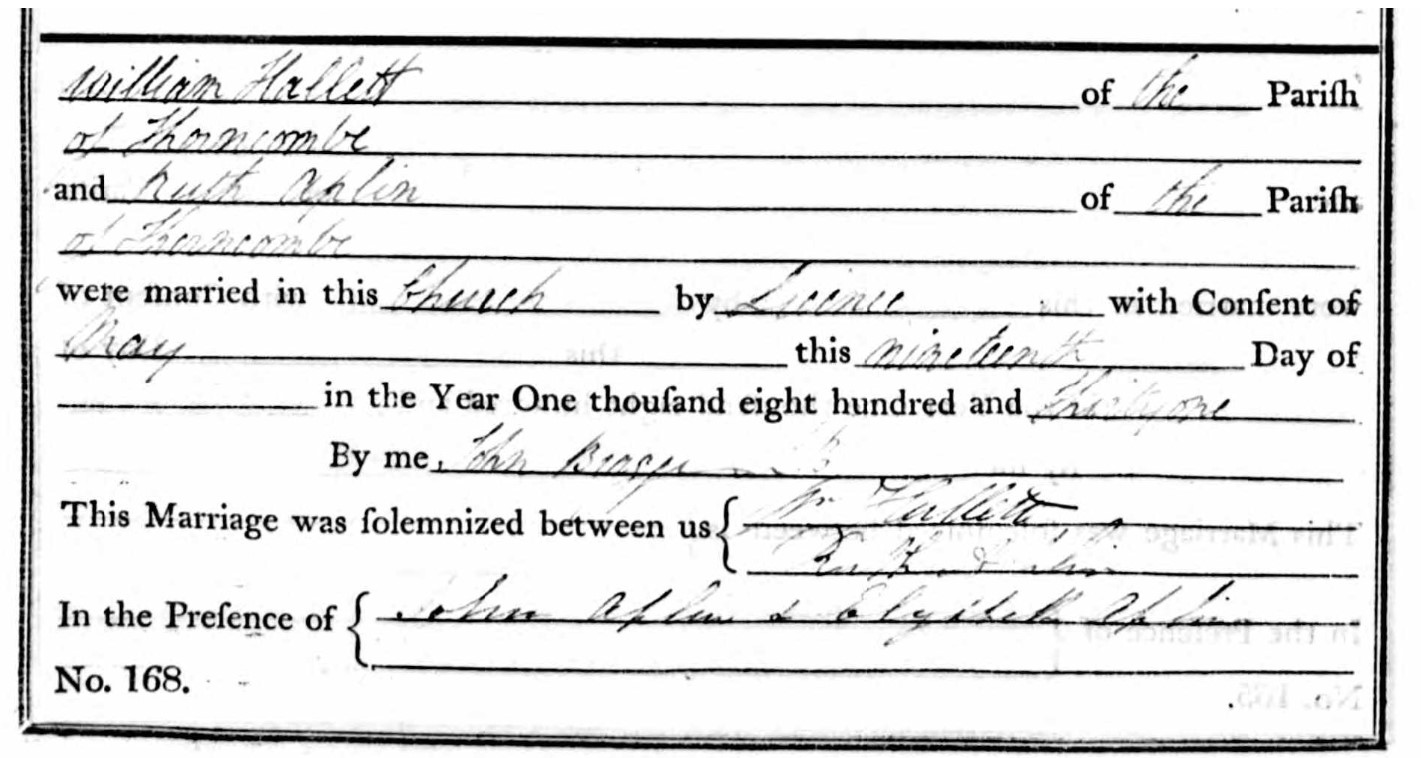 William Hallett of the Pariſh
of Thorncombe
and Ruth Aplin of the Pariſh
of Thorncombe
were married in this Church by Licence with Conſent of
May this nineteenth Day of
in the Year One thouſand eight hundred and Thirtyone
By me, John Bragge
This Marriage was ſolemnized between us { Wm Hallett
Ruth Aplin
In the Preſence of { John Aplin & Elizabeth Aplin
No. 168.